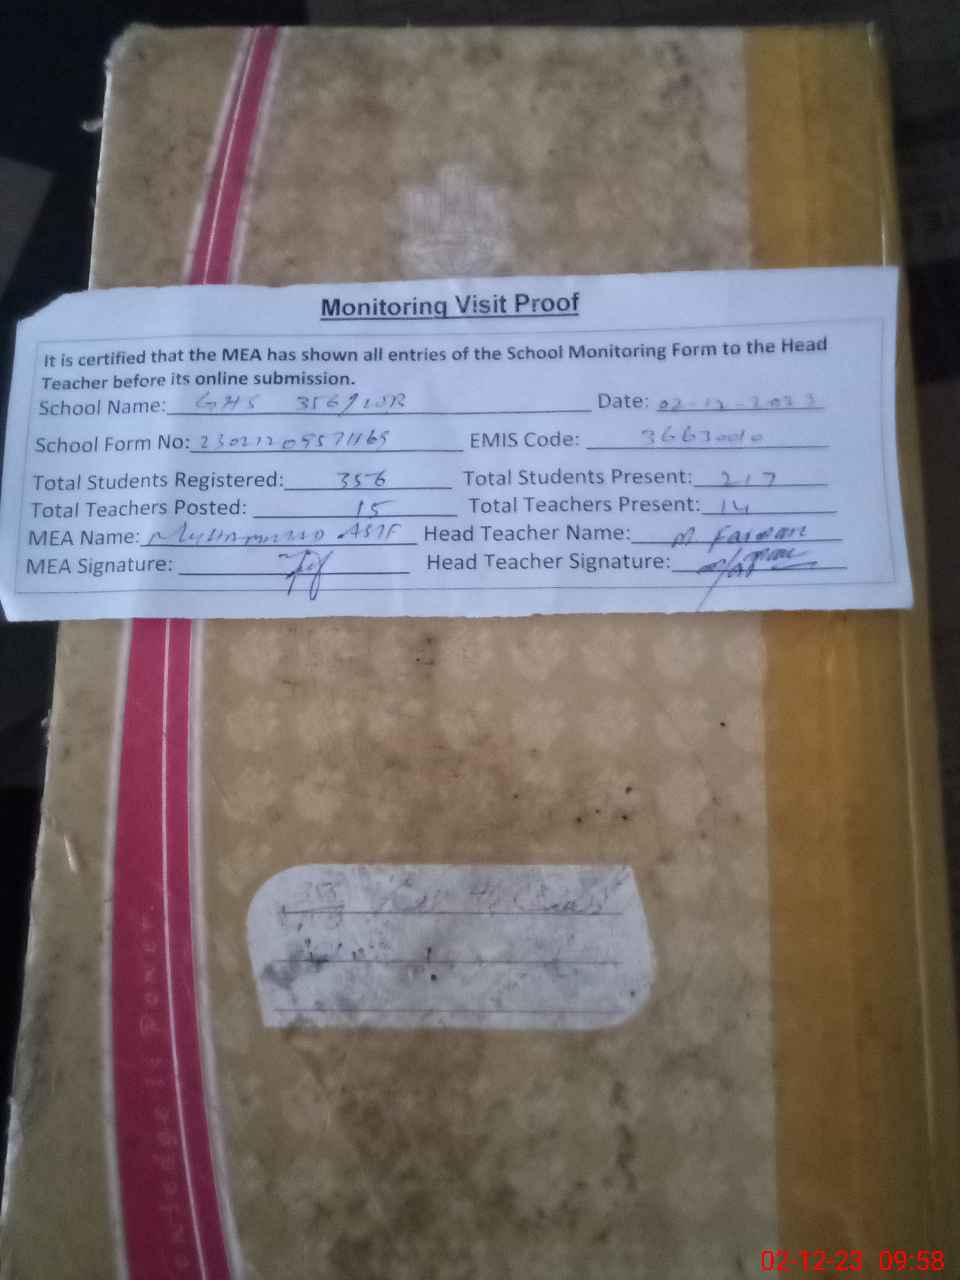 Monitoring Visit Proof
It is certified that the MEA has shown all entries of the School Monitoring Form to the Head
Teacher before its online submission.
School Name: GHS 356/WB Date: 02-12-2023
School Form No: 23021205571165 EMIS Code: 36630010
Total Students Registered: 356 Total Students Present: 217
Total Teachers Posted: 15 Total Teachers Present: 14
MEA Name: Muhammad ASIF Head Teacher Name: M
MEA Signature: Head Teacher Signature:
Knowledge is Power.
02-12-23 09:58